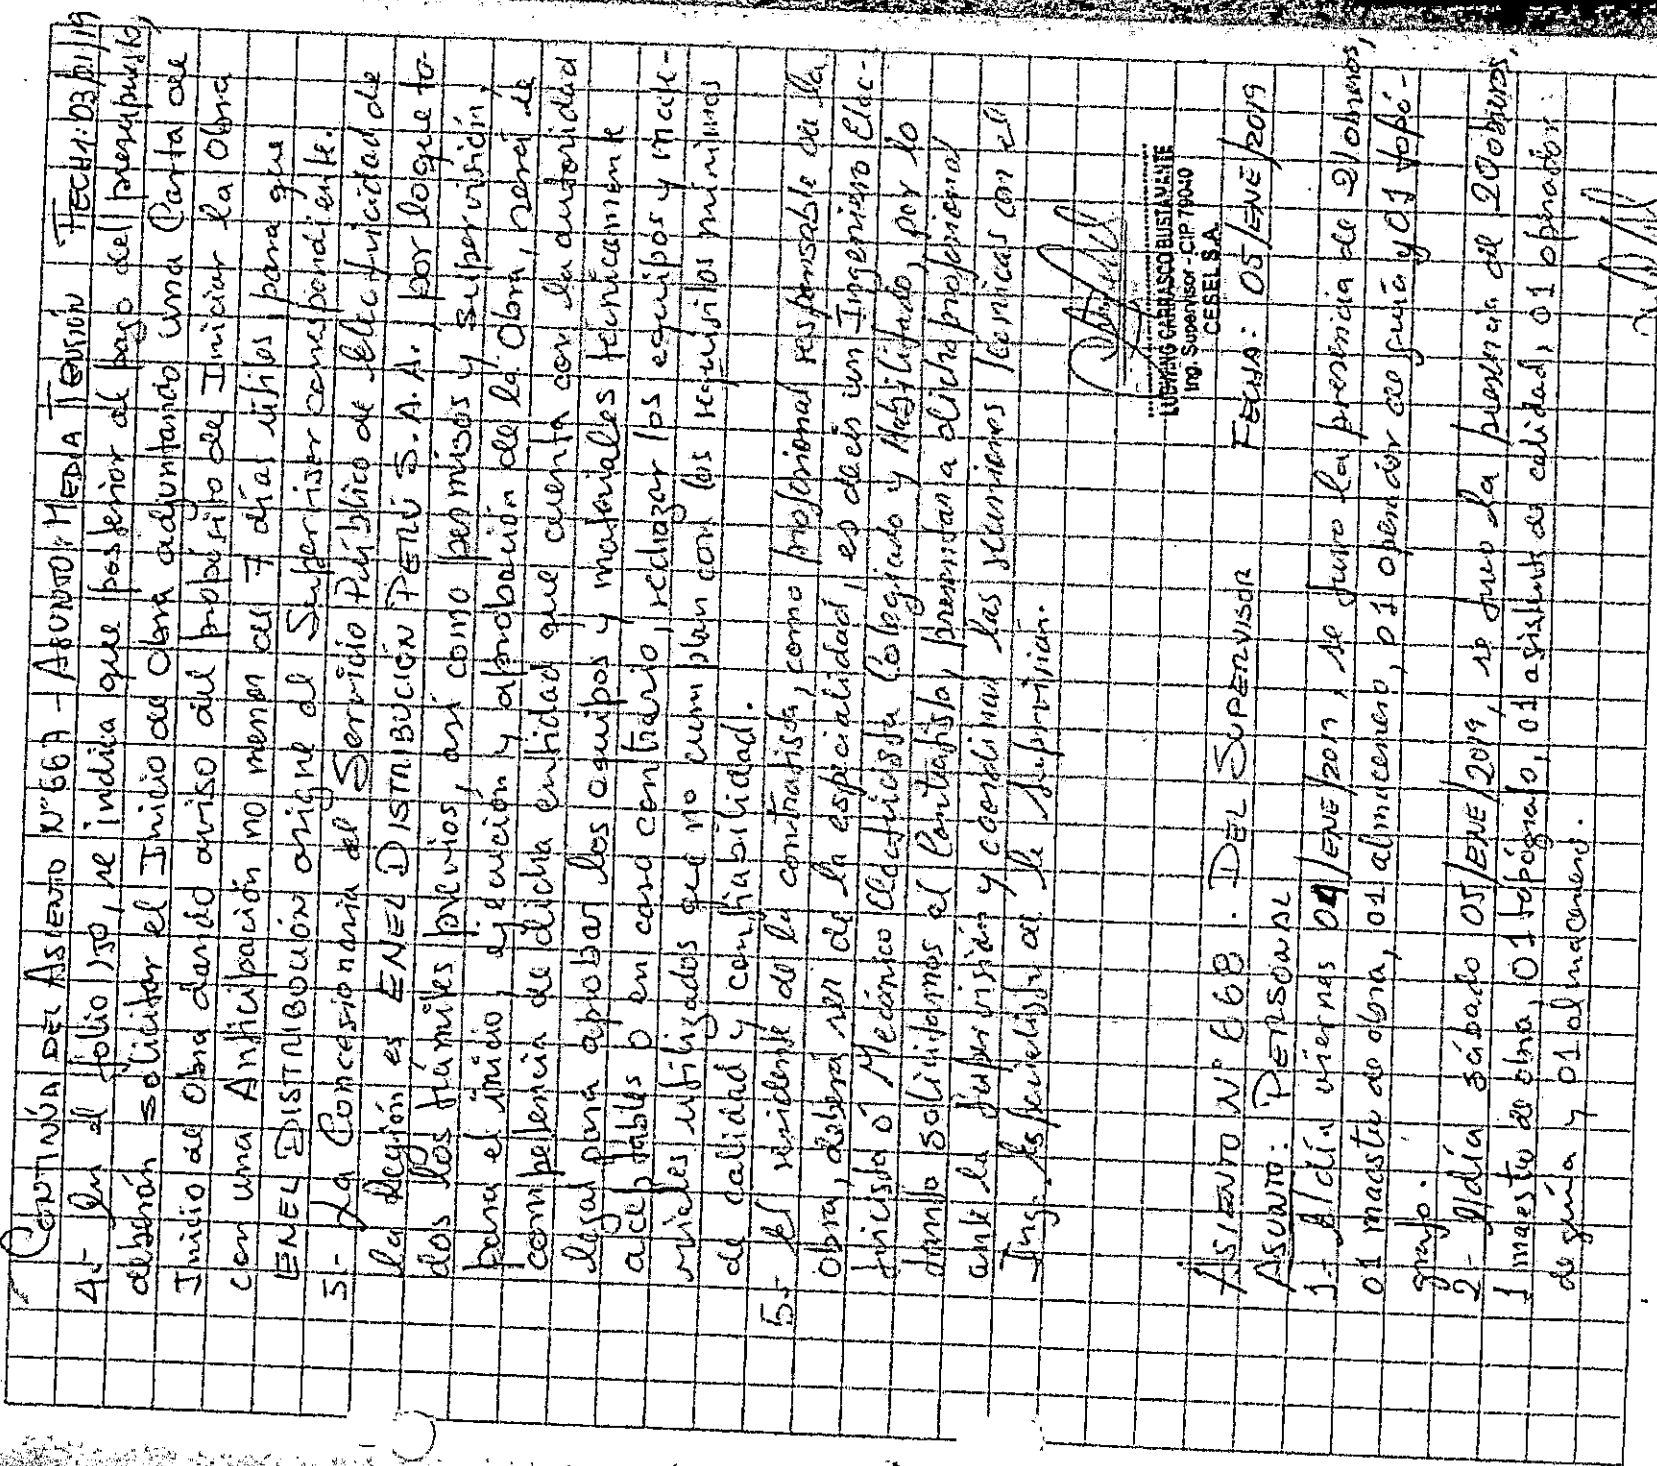 CONTINÚA DEL ASIENTO N°667 - ASUNTO: MEDIA TENSIÓN FECHA: 03/01/19
4.- En el folio 150, se indica que posterior al pago del presupuesto,
deberán solicitar el Inicio de Obra adjuntando una Carta de
Inicio de Obra dando aviso del propósito de Iniciar la Obra
con una Anticipación no menor de 7 días útiles, para que
ENEL DISTRIBUCIÓN asigne al Supervisor correspondiente.
5.- La Concesionaria del Servicio Público de Electricidad de
la Región es ENEL DISTRIBUCIÓN PERÚ S.A.A., por lo que to-
dos los trámites previos, así como permisos y supervisión,
para el inicio, ejecución y aprobación de la Obra, será de
competencia de dicha entidad que cuenta con la autoridad
legal para aprobar los equipos y materiales técnicamente
aceptables o en caso contrario, rechazar los equipos y mate-
riales utilizados que no cumplan con los requisitos mínimos
de calidad y confiabilidad.
5.- El residente de la contratista, como profesional responsable de la
Obra, deberá ser de la especialidad, es decir un Ingeniero Elec-
tricista ó Mecánico Electricista Colegiado y Habilitado, por lo
tanto solicitamos al Contratista, presentar a dicho profesional
ante la Supervisión y coordinar las reuniones técnicas con el
Ing. Especialista de la Supervisión.
LUDWING CARRASCO BUSTAMANTE
Ing. Supervisor - CIP 79040
CESEL S.A.
ASIENTO N° 668. DEL SUPERVISOR FECHA: 05/ENE/2019
ASUNTO: PERSONAL
1.- El día viernes 04/ENE/2019, se tuvo la presencia de 21 obreros,
01 maestro de obra, 01 almacenero, 01 operador de grúa y 01 topó-
grafo.
2.- El día sábado 05/ENE/2019, se tuvo la presencia de 20 obreros,
1 maestro de obra, 01 topógrafo, 01 asistente de calidad, 01 operador
de grúa y 01 almacenero.